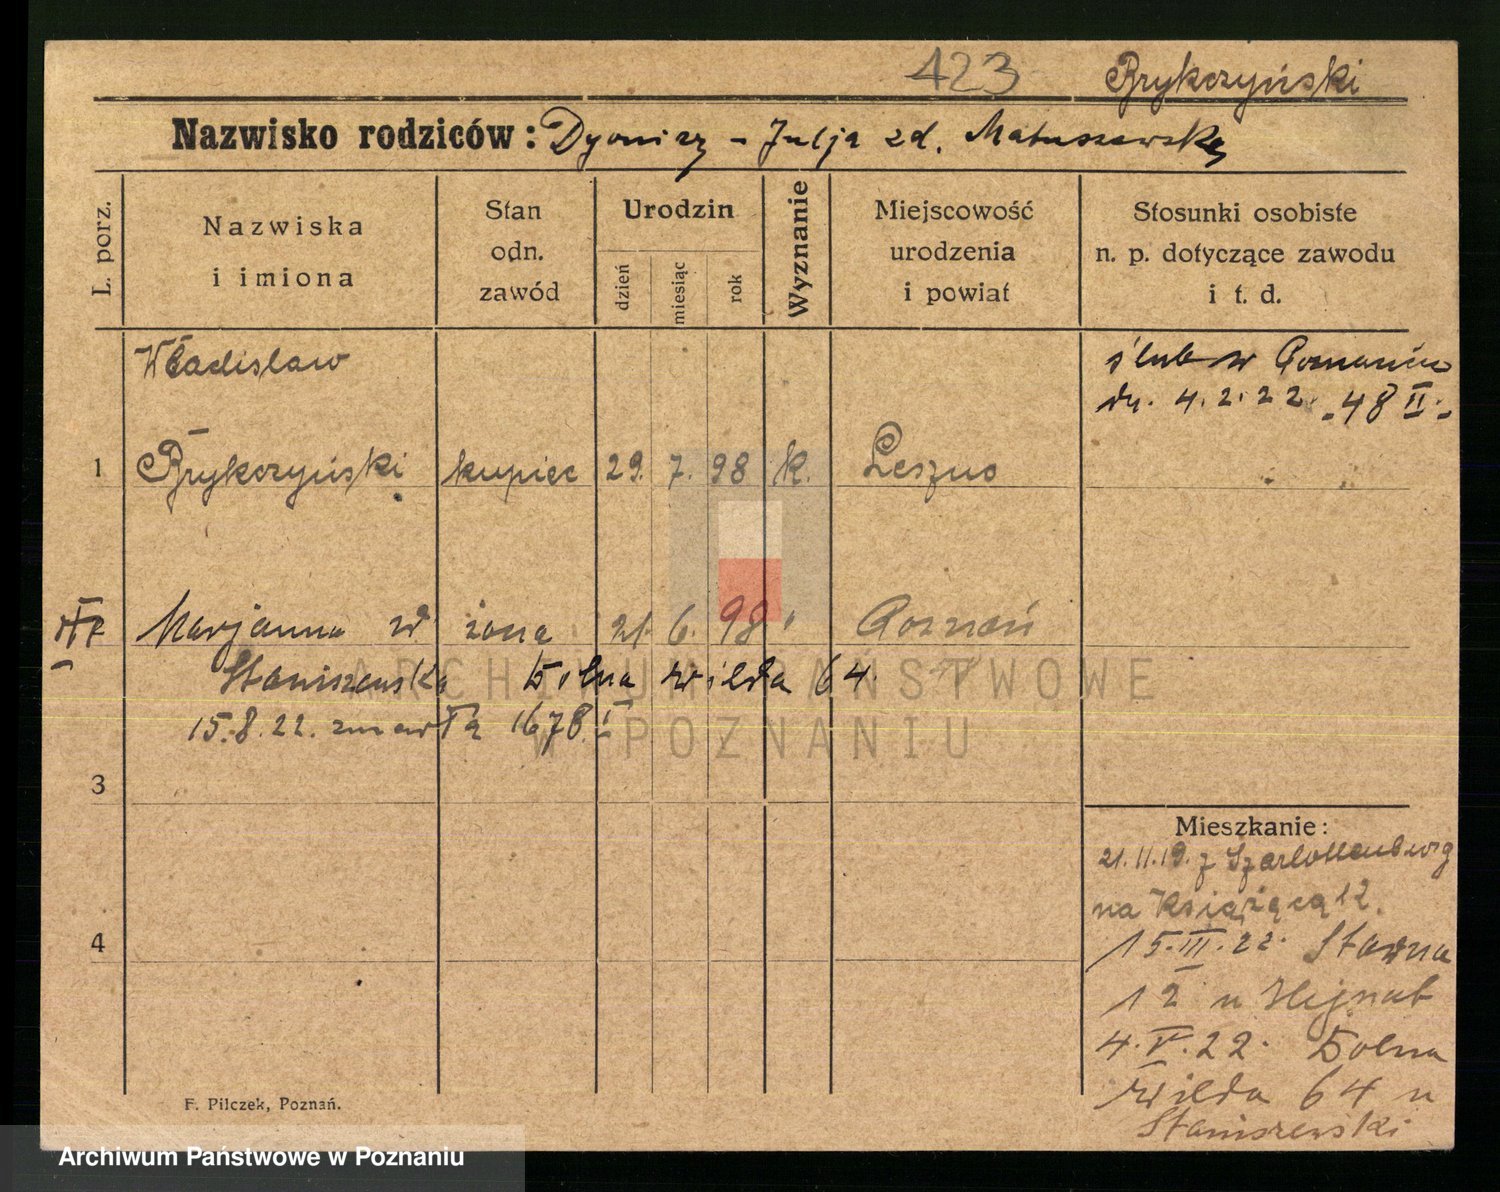 423 Brykczyński
Nazwisko rodziców: Dyonizy - Julja zd. Matuszewska
L. porz.
Nazwiska i imiona
Stan odn. zawód
Urodzin
dzień
miesiąc
rok
Wyznanie
Miejscowość urodzenia i powiat
Stosunki osobiste n. p. dotyczące zawodu i t. d.
Władisław
ślub w Poznaniu
dn. 4.2.22. - 48 II -
1 Brykczyński kupiec 29. 7. 98 k. Leszno
Marjanna zd żona 21. 6. 98 " Poznań
Staniszewska Dolna Wilda 64.
15.8.22. zmarła 1678. I
3
Mieszkanie:
21.11.19. z Szarlottenburg
na Książęcą 12.
4
15.III.22. Stawna
12 u Hejnał
4.V.22. Dolna
Wilda 64 u
Staniszewski
F. Pilczek, Poznań.
ARCHIWUM PAŃSTWOWE
W POZNANIU
Archiwum Państwowe w Poznaniu